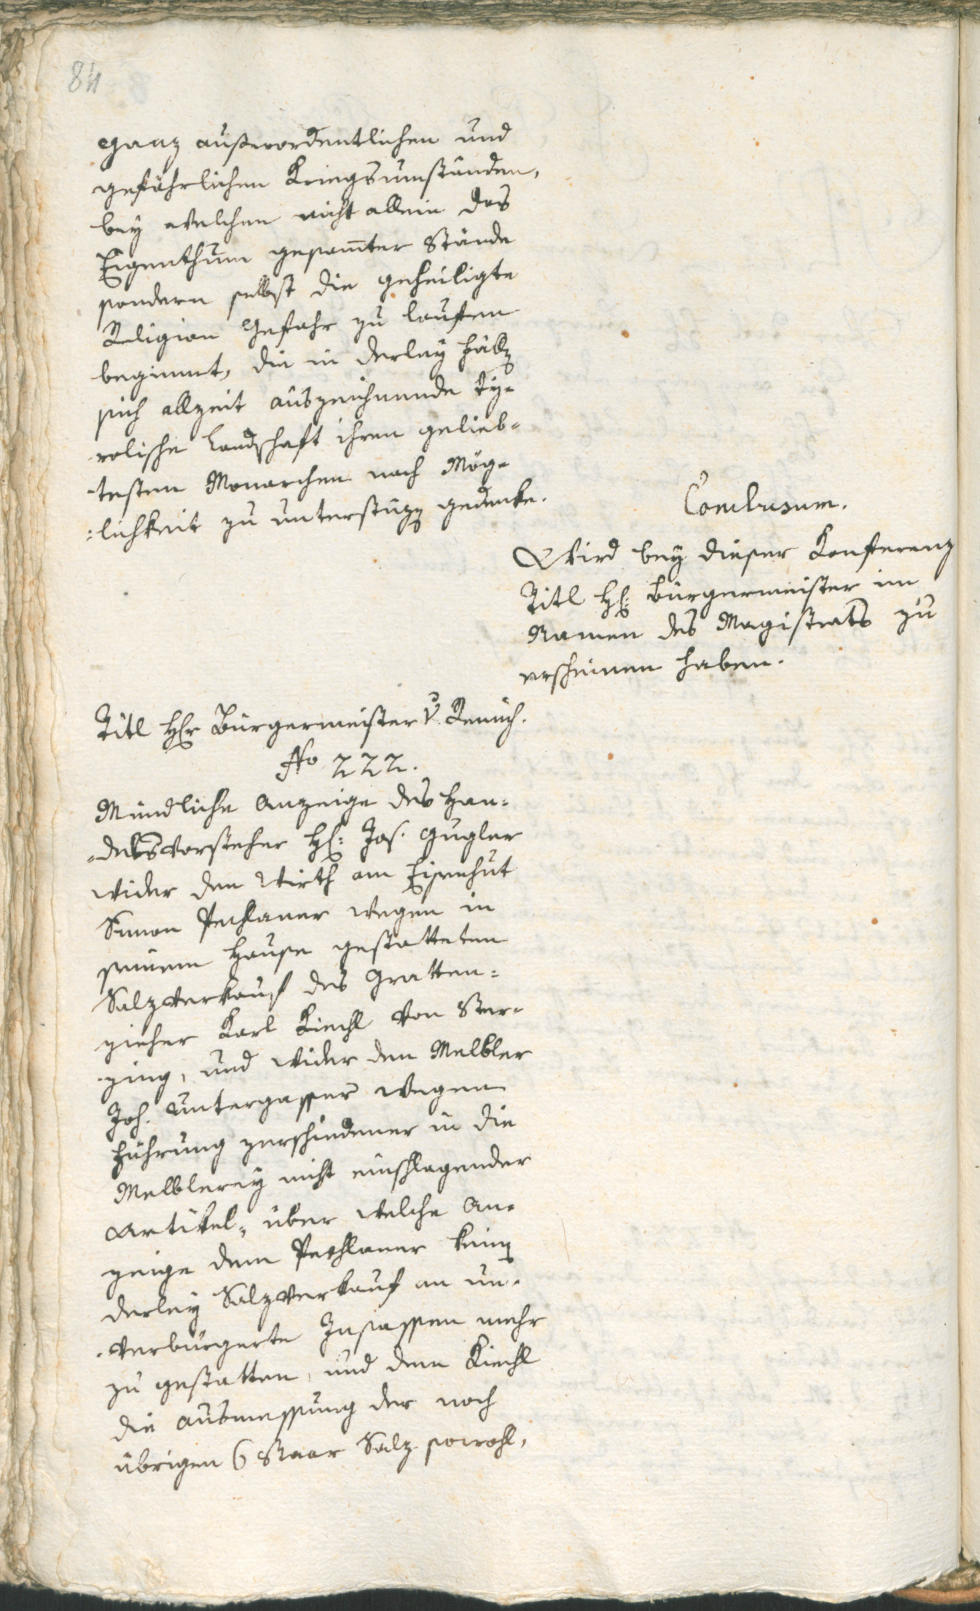 84
ganz außerordentlichen und
gefährlichen Kriegsumständen,
bey welchen nicht allein das
Eigenthum gesam̄ter Stände
sondern selbst die geheiligte
Religion Gefahr zu lauffen
beginnet, die in derley Fällen
sich allzeit auszeichnende Ty=
rolische Landschaft ihren gelieb=
testen Monarchen nach Mög=
=lichkeit zu unterstüzen gedenke.
Conclusum.
Wird bey dieser Konferenz
Titl H: Bürgermeister im
Namen des Magistrats zu
erscheinen haben.
Titl Hr Bürgermeister v.
No 222.
Mündliche Anzeige des Han=
=delsvorsteher H: Jos. Gugler
wider den Wirth am Eisenhut
Simon Pechlaner wegen in
seinem Hause gestatteten
Salzverkauf des Gratten=
zieher Karl Kiechl von Ster=
zing, und wider den Melbler
Joh. Untergasser wegen
Führung verschiedener in die
Melblerey nicht einschlagender
Artikel, über welche An=
zeige dem Pechlaner keinen
derley Salzverkauf an un=
=verbürgerte Insassen mehr
zu gestatten, und dem Kiechl
die Ausmessung der noch
übrigen 6 Staar Salz sowohl,